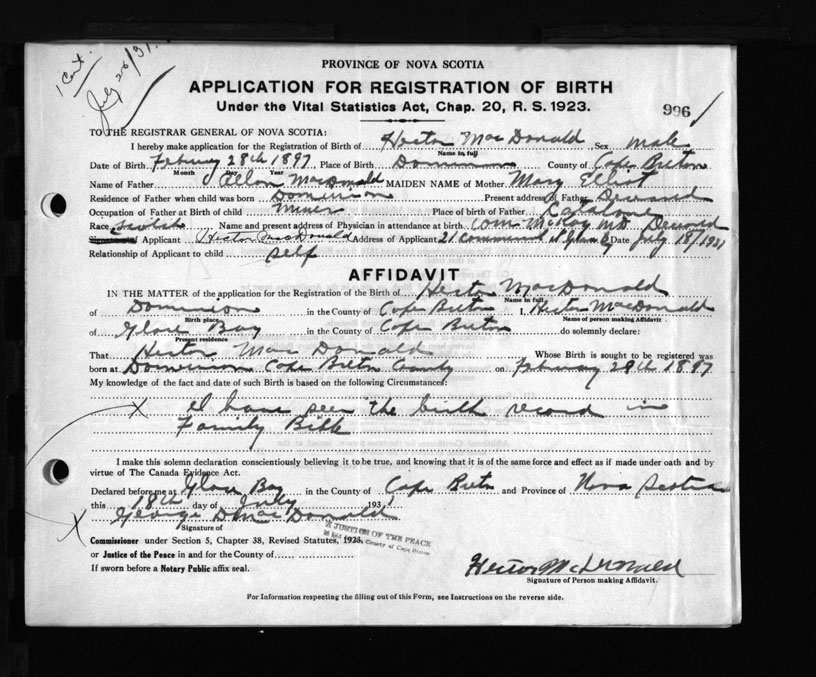 1 Cert.
July 20/31
PROVINCE OF NOVA SCOTIA
APPLICATION FOR REGISTRATION OF BIRTH
Under the Vital Statistics Act, Chap. 20, R. S. 1923.
996
TO THE REGISTRAR GENERAL OF NOVA SCOTIA:
I hereby make application for the Registration of Birth of Hector MacDonald Sex male
Name in full
Date of Birth February 28th 1897, Place of Birth Dominion County of Cape Breton
Month Day Year
Name of Father Allan MacDonald MAIDEN NAME of Mother Mary Elliot
Residence of Father when child was born Dominion Present address of Father Deceased
Occupation of Father at Birth of child miner Place of birth of Father Catalone
Race Scotch Name and present address of Physician in attendance at birth McKay MD Deceased
Applicant Hector MacDonald Address of Applicant 21 Commercial St Glace B Date July 18/1931
Relationship of Applicant to child self
AFFIDAVIT
IN THE MATTER of the application for the Registration of the Birth of Hector MacDonald
Name in full
of Dominion in the County of Cape Breton I, Hector MacDonald
Birth place Name of person making Affidavit
of Glace Bay in the County of Cape Breton do solemnly declare:
Present residence
That Hector MacDonald Whose Birth is sought to be registered was
born at Dominion Cape Breton County on February 28th 1897
My knowledge of the fact and date of such Birth is based on the following Circumstances:
X I have seen the birth record in
Family Bible
I make this solemn declaration conscientiously believing it to be true, and knowing that it is of the same force and effect as if made under oath and by
virtue of The Canada Evidence Act.
Declared before me at Glace Bay in the County of Cape Breton and Province of Nova Scotia
this 18th day of July 1931
X George D MacDonald
Signature of
A JUSTICE OF THE PEACE
in and for the County of Cape Breton
Commissioner under Section 5, Chapter 38, Revised Statutes, 1923.
or Justice of the Peace in and for the County of
If sworn before a Notary Public affix seal.
Hector McDonald
Signature of Person making Affidavit.
For Information respecting the filling out of this Form, see Instructions on the reverse side.